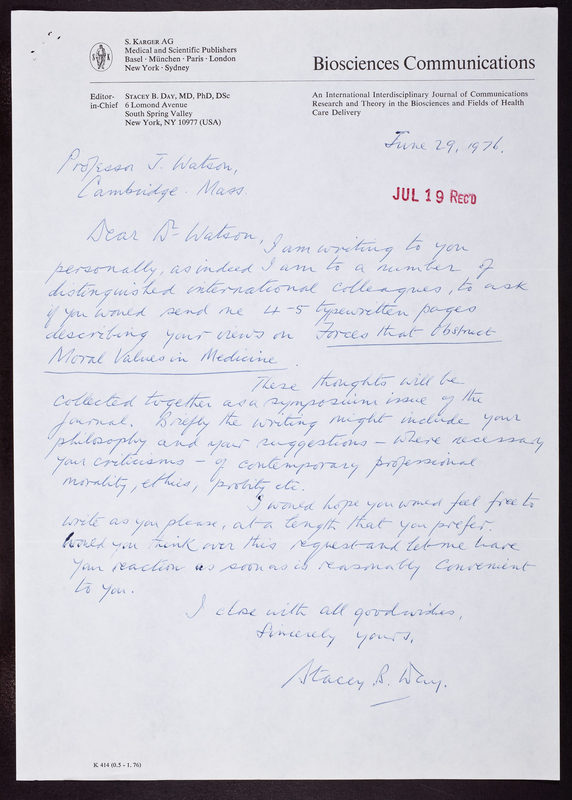 S. KARGER AG
Medical and Scientific Publishers
Basel · München · Paris · London
New York · Sydney
S K
Biosciences Communications
Editor-in-Chief
STACEY B. DAY, MD, PhD, DSc
6 Lomond Avenue
South Spring Valley
New York, NY 10977 (USA)
An International Interdisciplinary Journal of Communications
Research and Theory in the Biosciences and Fields of Health
Care Delivery
June 29, 1976.
Professor J. Watson,
Cambridge. Mass.
JUL 19 REC'D
Dear Dr Watson,
I am writing to you
personally, as indeed I am to a number of
distinguished international colleagues, to ask
if you would send me 4-5 typewritten pages
describing your views on Forces that Obstruct
Moral Values in Medicine.
These thoughts will be
collected together as a symposium issue of the
journal. Briefly the writing might include your
philosophy and your suggestions – where necessary
your criticisms – of contemporary professional
morality, ethics, probity etc.
I would hope you would feel free to
write as you please, at a length that you prefer.
Would you think over this request and let me have
your reaction as soon as is reasonably convenient
to you.
I close with all good wishes,
Sincerely yours,
Stacey B. Day.
K 414 (0.5 - 1. 76)